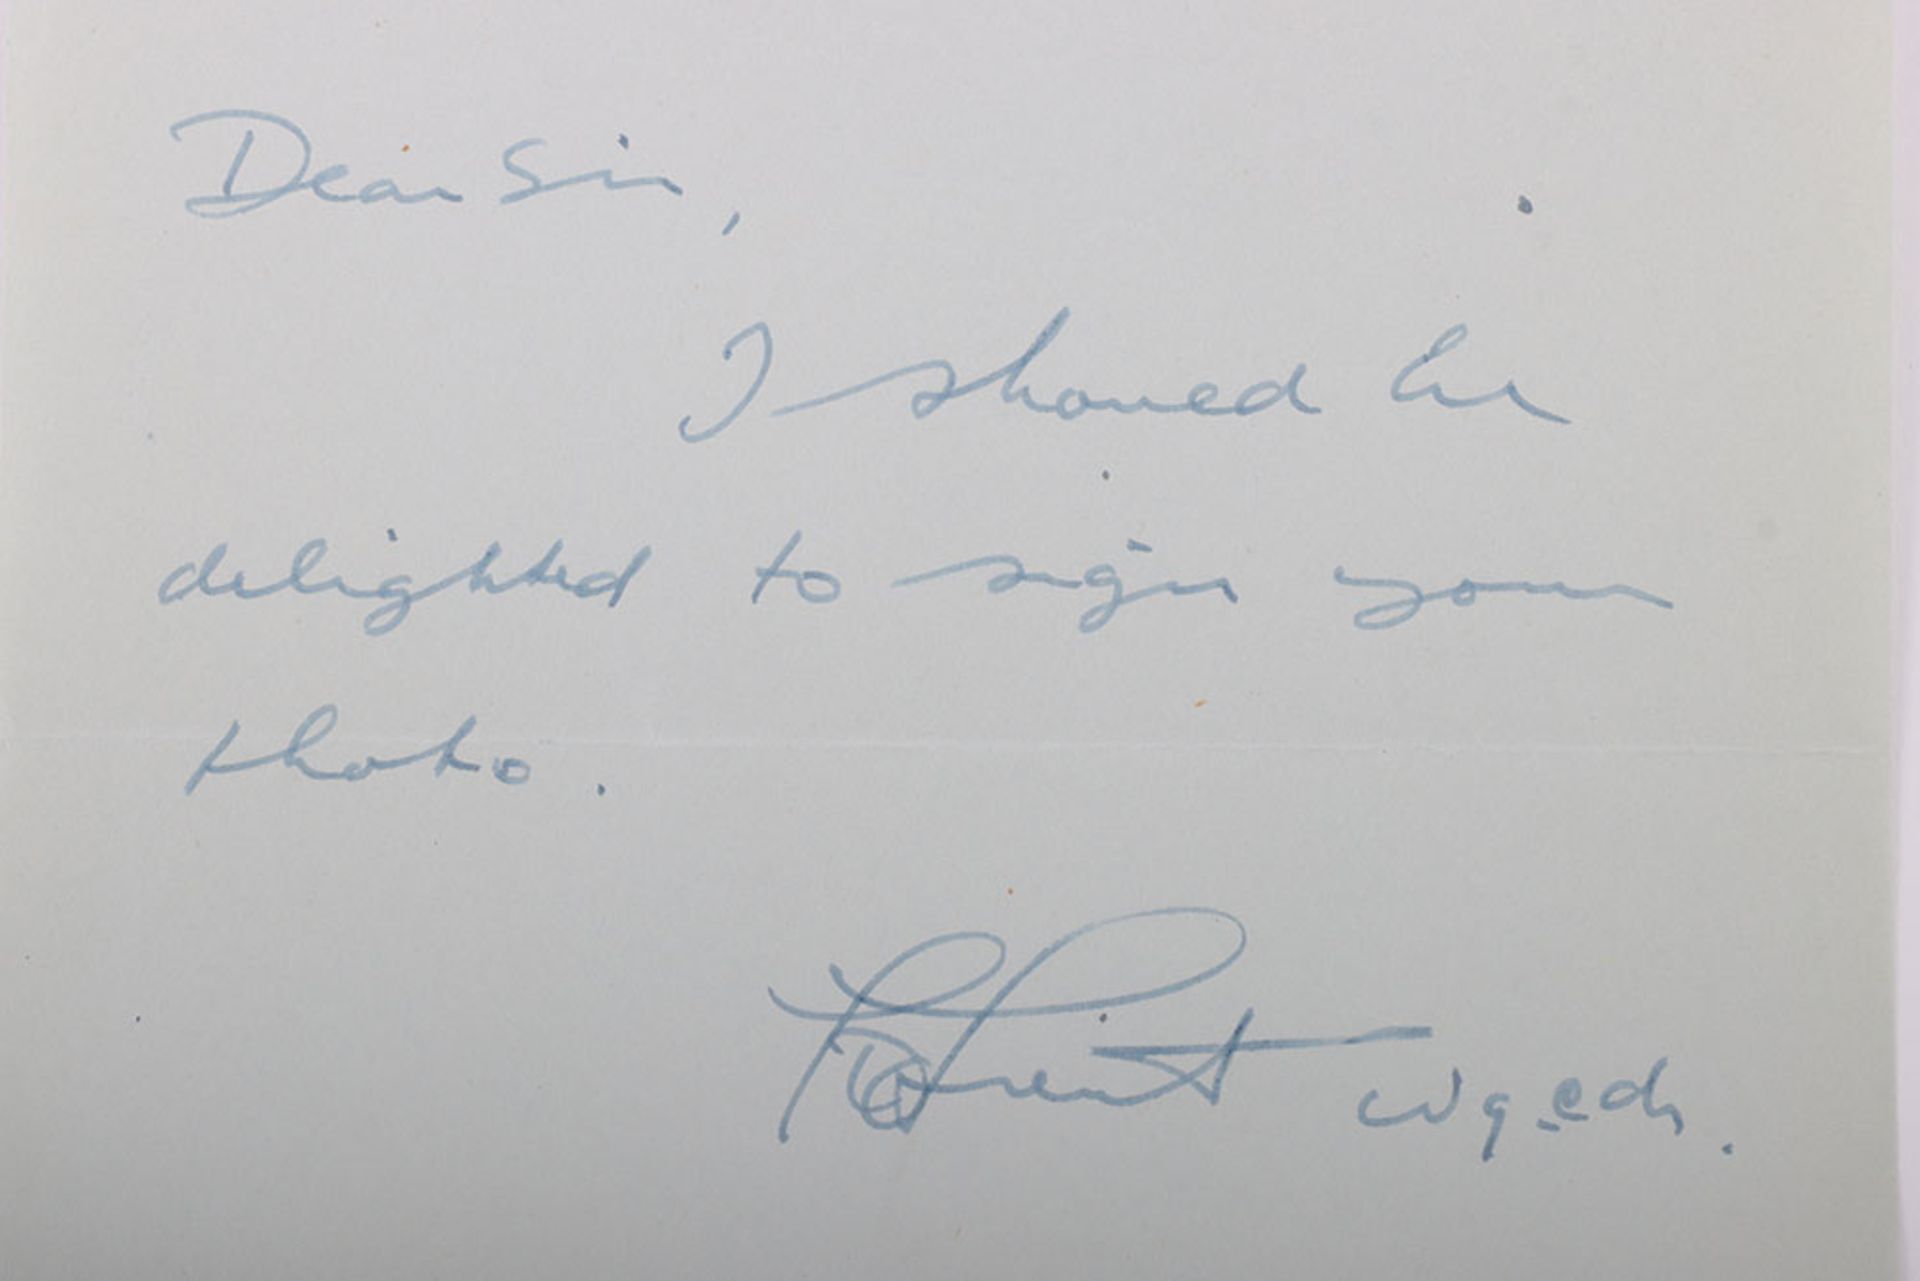 Dear Sir,
I should be
delighted to sign your
photo.
Wg.Cdr.